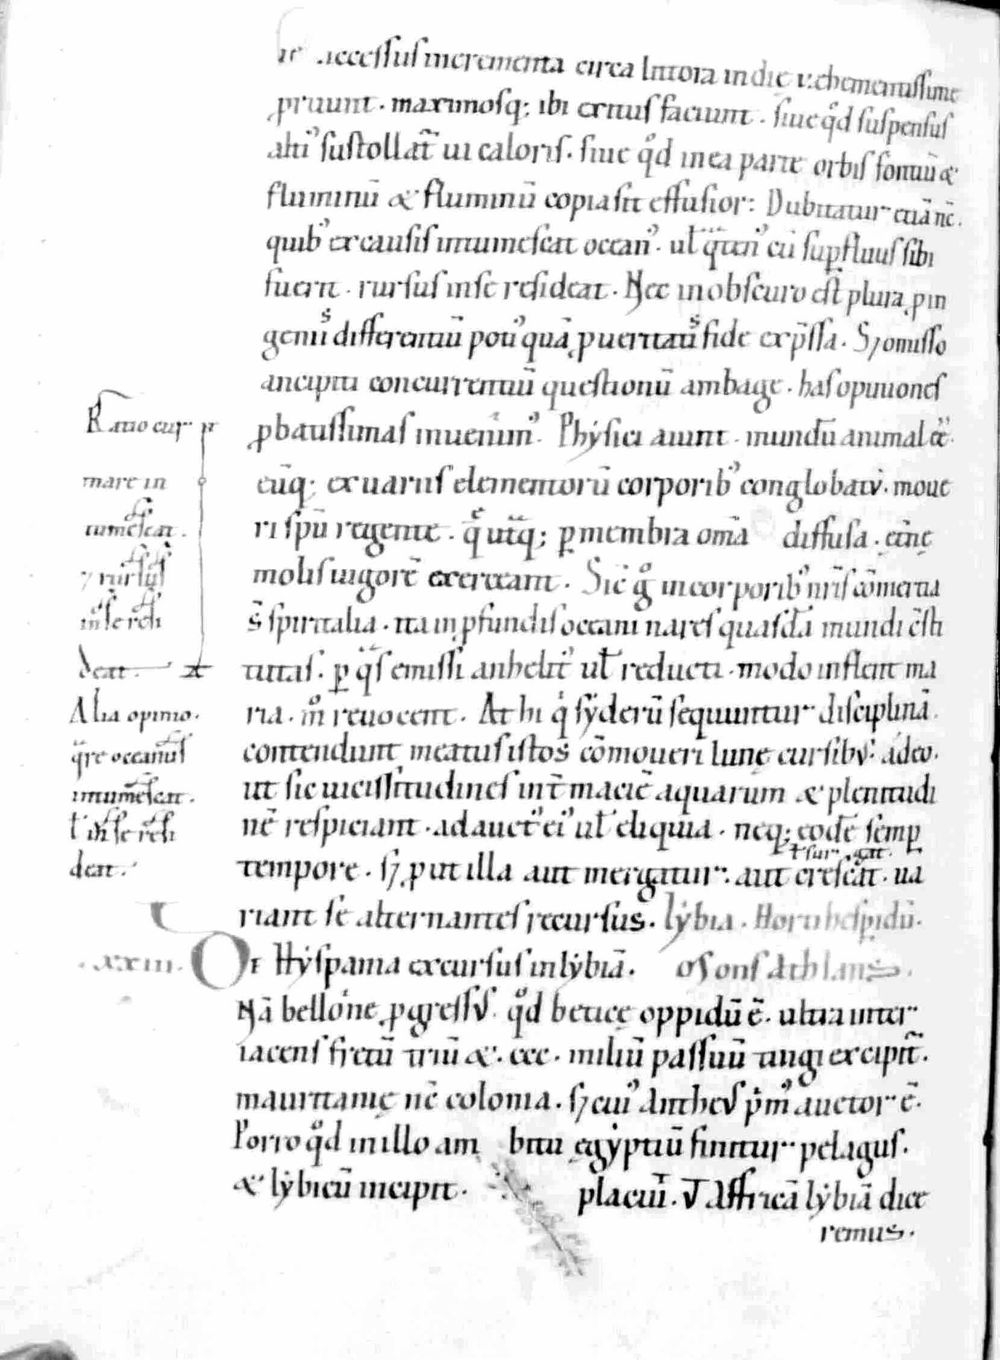 accessus incrementa circa littora indię uehementissime
ꝓruunt . maximosq; ibi exitus faciunt . siue qͦd suspensus
alti᾽ sustollat᷑ ui caloris . siue qͦd in ea parte orbis fontiū &
fluminū & fluminū copia sit effusior : Dubitatur etiā nc̄ .
quib᾽ ex causis intumescat ocean᾽ . ul̄ cū suꝑfluus sibi
fuerit . rursus in se resideat . Nec in obscuro est plura ꝓ in
geniis differentiū poti᾽ quā ꝓ ueritatis fide exp̄ssa . Sꝫ omisso
ancipiti concurrentiū questionū ambage . has opiniones
ꝓbatissimas inuenim᾽ . Phẏsici aiunt . mundū animal ēē .
eūq; ex uariis elementorū corporib᾽ conglobatū . moue
ri spū regente . q̄ utq̄; ꝑ membra om̄a diffusa . ęt̄nę
molis uigorē exerceant . Sic̄ gͦ in corporib᾽ nr̄is cōmercia
s̄ spiritalia . ita in ꝓfundis oceani nares quasdā mundi c̄sti
tutas . ꝑ q̄s emissi anhelit᾽ ul̄ reducti . modo inflent ma
ria . mͦ reuocent . At hi qⁱ sẏderū sequuntur disciplinā .
contendunt meatus istos cōmoueri lunę cursibus . adeo .
ut sic uicissitudines int̄ maciē aquarum & plenitudi
nē respiciant . ad auct᾽ ei᾽ ul̄ eliquia . neq; eodē semꝑ
tempore . sꝫ ꝓut illa aut mergatur . aut crescat . ua
riant se alternantes recursus . lẏbia . Horti hespidū .
.xxiii. De Hẏspania excursus in lẏbiā . os ons Athlans .
Nā bellone ꝓgressus . qͦd beticę oppidū ē . ultra inter
iacens fretū triū &. ccc . miliū passuū tingi excipit᷑ .
mauritanię nc̄ colonia . sꝫ cui᾽ Antheus pⁱm᾽ auctor ē .
Porro qͦd in illo am bitu ęgẏptiū finitur pelagus .
& lẏbicū incipit . placuit . ut Affricā lẏbiā dice
remus .
Ratio cur
mare in
tumescat .
ꝫ rursus
in se resi
deat .
Alia opinio .
q̄re oceanus
intumescat .
ł in se resi
deat .